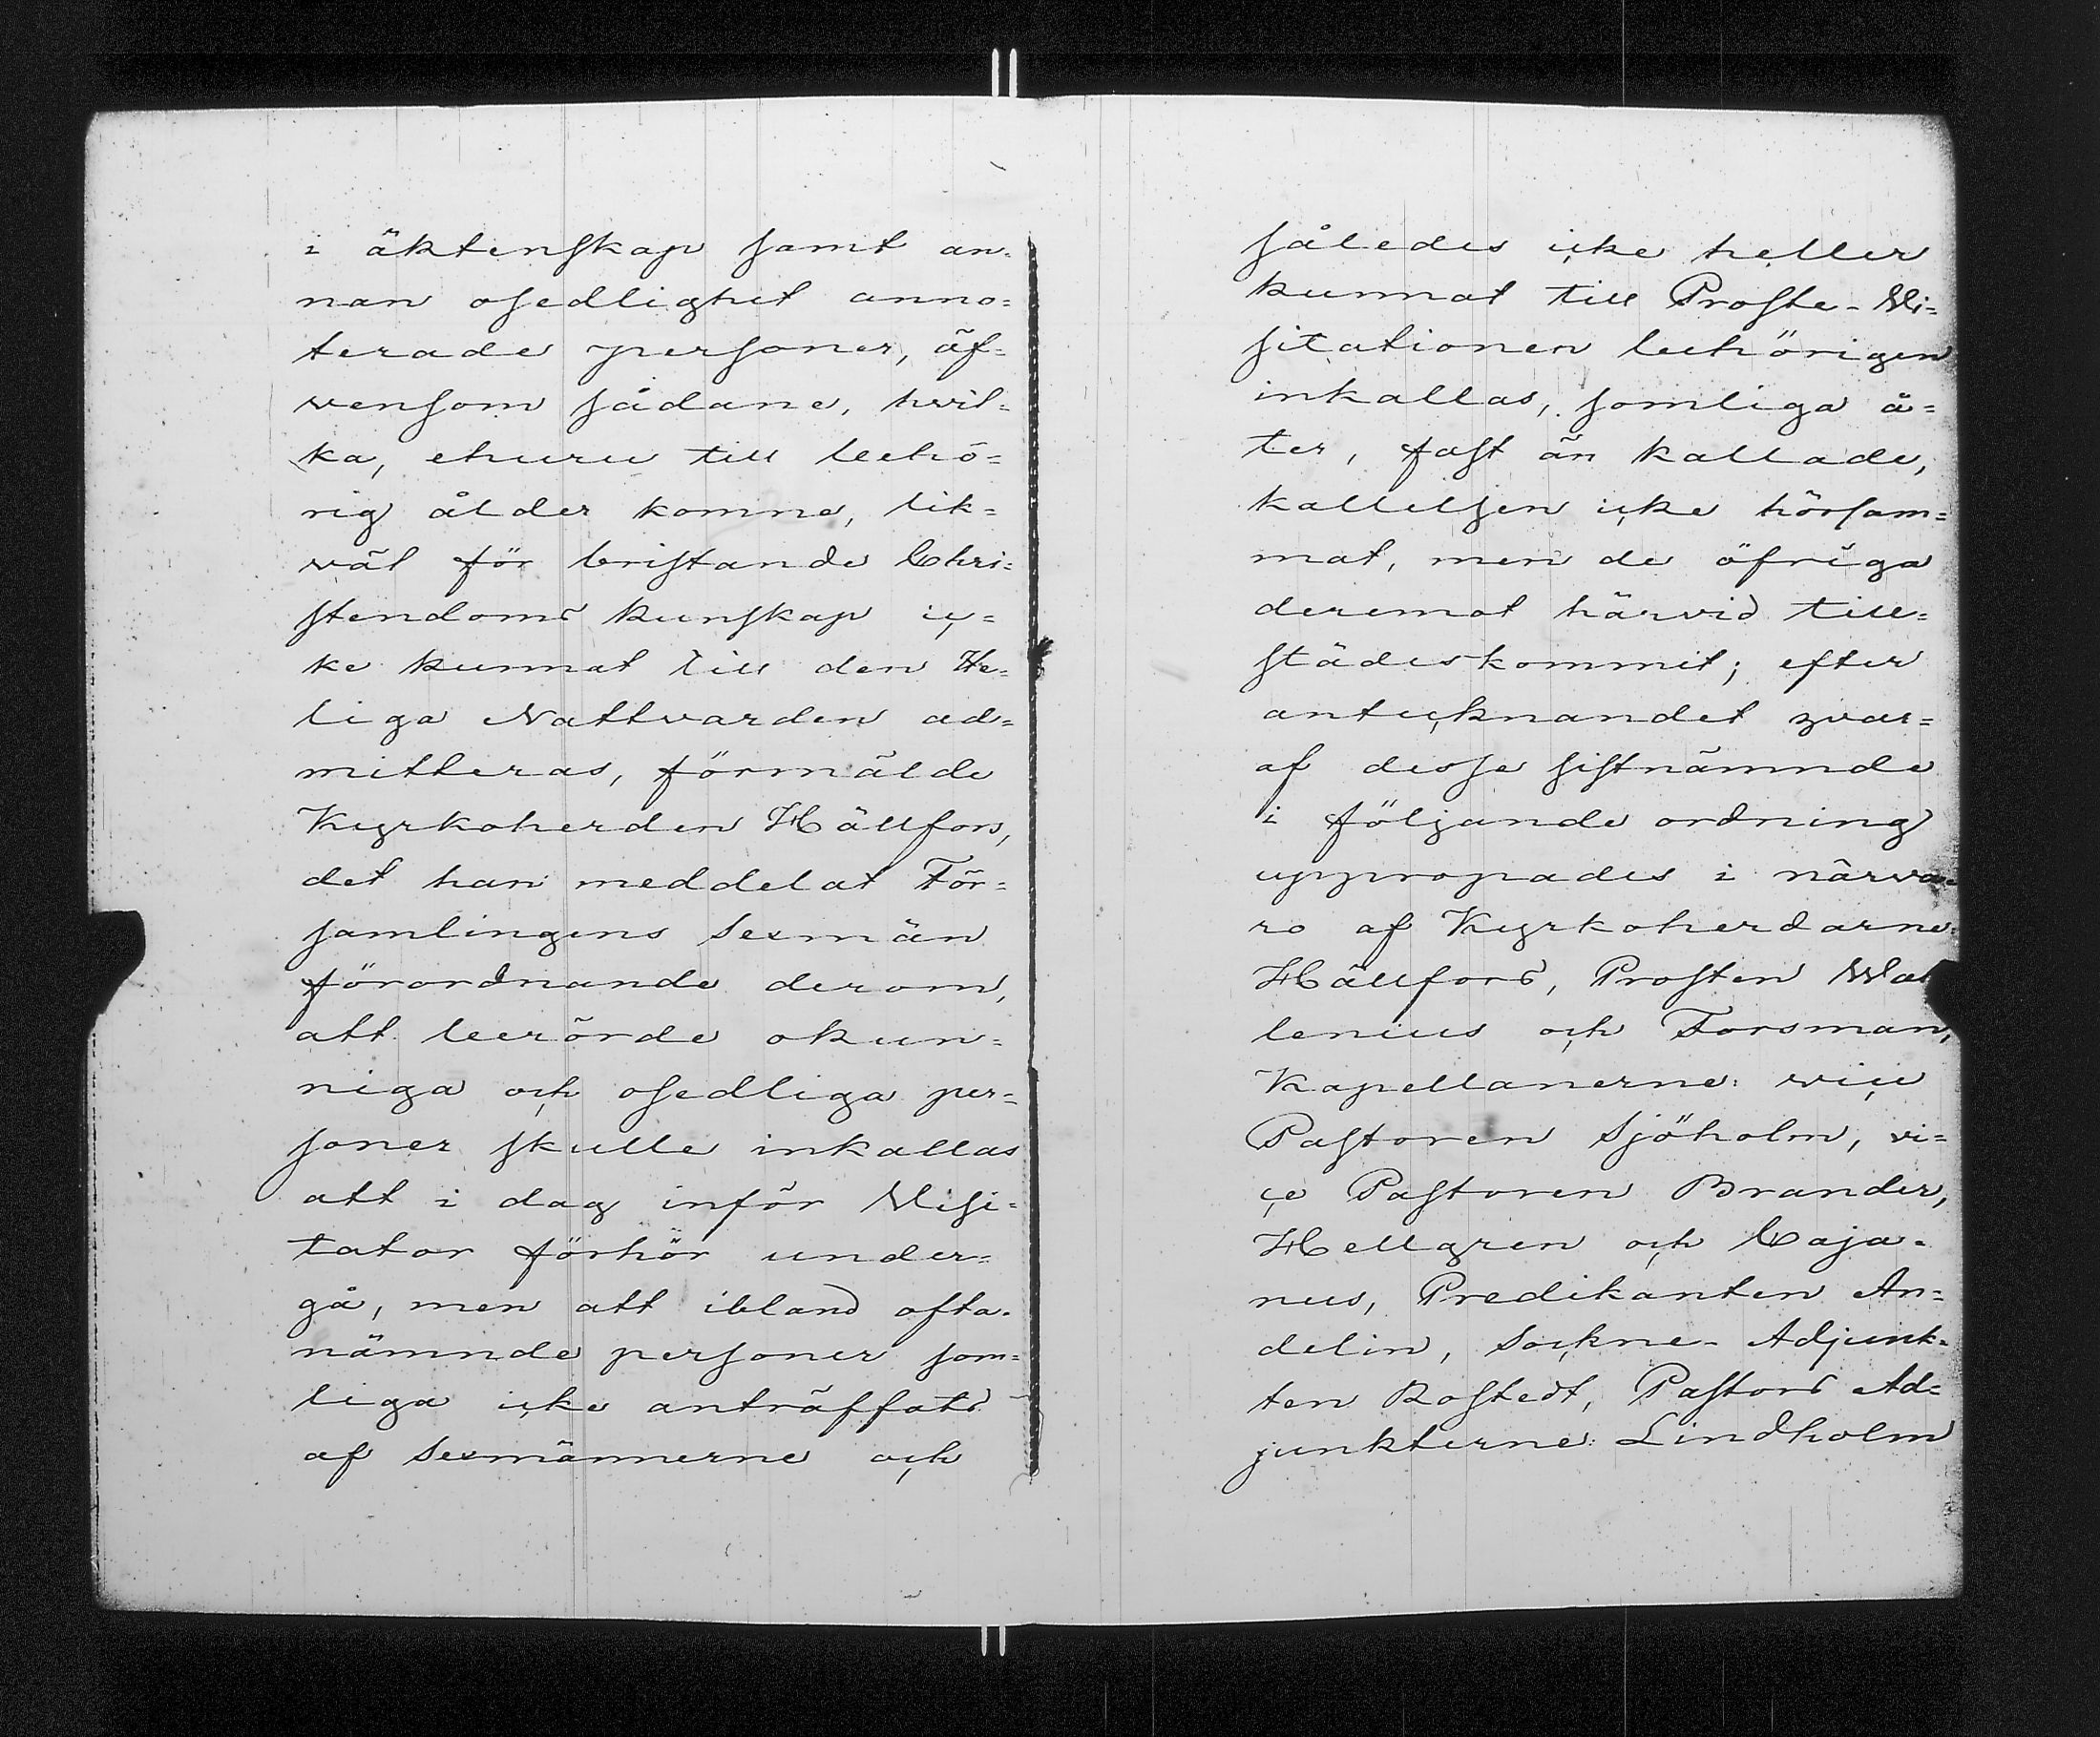 i äktenskap samt an-
nan osedlighet anno=
terade personer, äf=
vensom sådane, hvil=
ka, ehuru till behö=
rig ålder komne, lik=
väl för bristande Chri=
stendoms kunskap ic=
ke kunnat till den He=
liga Nattvarden ad=
mitteras, förmälde
Kyrkoherden Hällfors,
det han meddelat För=
samlingens Sexmän
förordnande derom,
att berörde okun=
niga och osedliga per=
soner skulle inkallas
att i dag inför Visi=
tator förhör under=
gå, men att ibland ofta-
nämnde personer som=
liga icke anträffats
af Sexmännerne och
således icke heller
kunnat till Proste-Vi=
sitationen behörigen
inkallas, somliga å=
ter, fast än kallade,
kallelsen icke hörsam=
mat, men de öfriga
deremot härvid till=
städeskommit; efter
antecknandet hvar=
af desse sistnämnde
i följande ordning
uppropades i närva=
ro af Kyrkoherdarne:
Hällfors, Prosten Wal
lenius och Forsman,
Kapellanerne: vice
Pastoren Sjöholm, vi=
ce Pastoren Brander,
Hellgren och Caja-
nus, Predikanten An=
delin, Sockne-Adjunk=
ten Bostedt, Pastors Ad=
junkterne: Lindholm